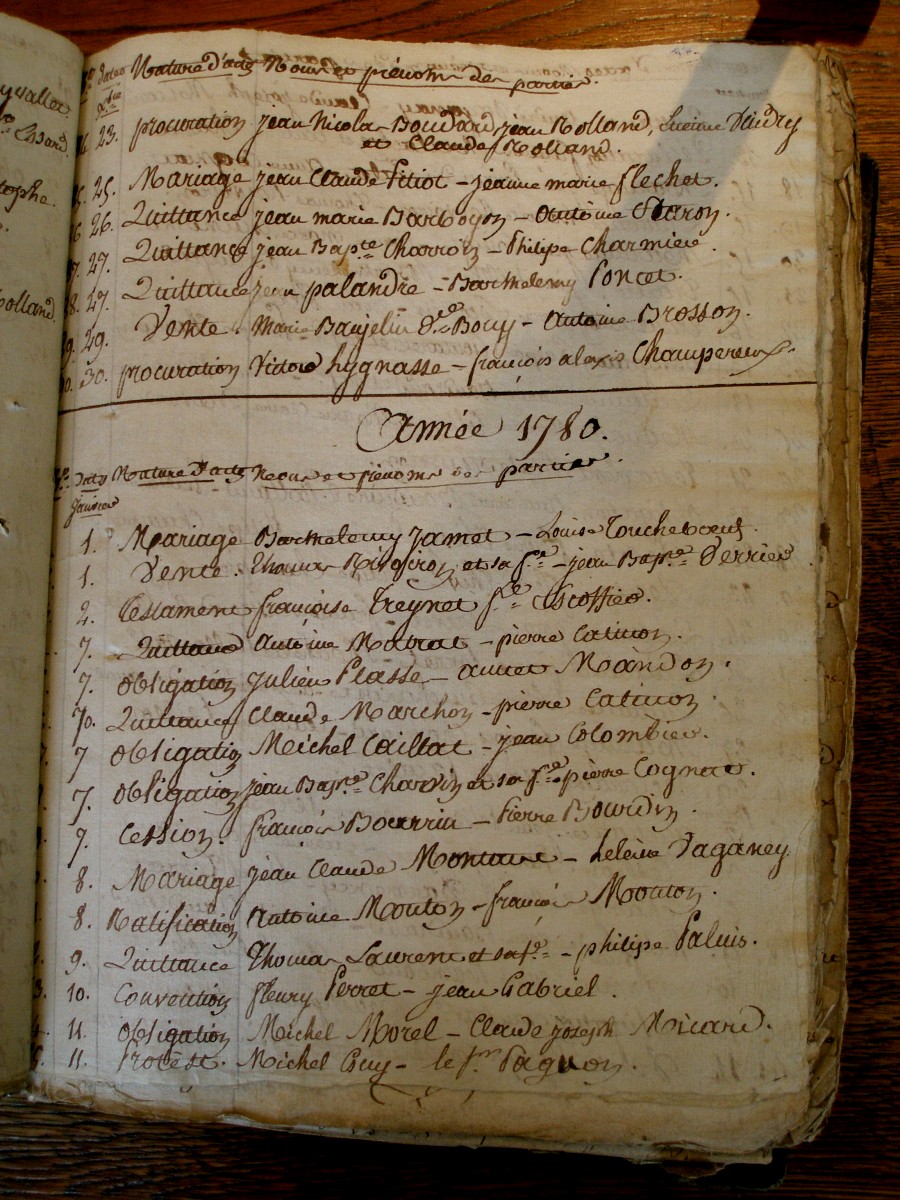 yvallet
Lusard.
tophe.
olland.
Nos Dates Nature d'actes Noms et prénoms des parties.
Xbre
23. procuration jean Nicolas Boudard, jean Rolland,
et Claude Rolland.
25. Mariage jean Claude Pitiot – jeanne marie flechet.
26. Quittance jean marie Barboyon – Antoine
27. Quittance jean Bapte Charroin – Philipe Charmiere.
27. Quittance jean palandre – Barthelemy Poncet.
29. Vente. Marie Baujelin Dlle Bouy – Antoine Brosson.
30. procuration Victoir hygnasse – françois alexis Champereux.
Année 1780.
Nos Dates Nature d'actes Noms et prénoms des parties.
Janvier
1. Mariage Barthelemy Jamet – Louise Touchebœuf.
1. Vente. Thomas et sa fe – jean Bapte Verrier
2. Testament françoise Treynet fe Escoffier.
7. Quittance Antoine Matrat – pierre Catinon.
7. Obligation Julien Plasse – annet Mandon.
7. Quittance Claude Marchon – pierre Catinon
7 Obligation Michel Caillat – jean Colombier.
7. Obligation jean Bapte Charvin et sa fe – pierre Cognet.
7. Cession. françois Bourrin – Pierre Bourdin.
8. Mariage jean Claude Montane – helene Daganey.
8. Ratification Antoine Mouton – françois Mouton.
9. Quittance Thomas Laurent et sa fe – philipe Paluis.
10. Convention fleury Perret – jean Gabriel.
11. Obligation Michel Morel – Claude joseph Micard.
11. Protest. Michel Cruy – le sr Pagnon.